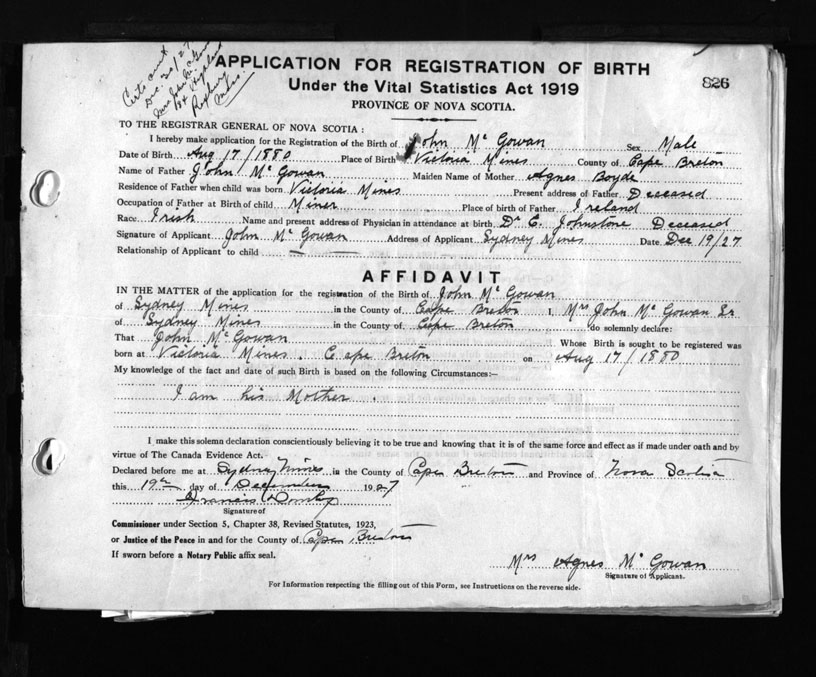 Cert. sent
Dec. 30/27
Mrs John McGowan
84 Highland
Roxbury
Mass.
APPLICATION FOR REGISTRATION OF BIRTH
826
Under the Vital Statistics Act 1919
PROVINCE OF NOVA SCOTIA.
TO THE REGISTRAR GENERAL OF NOVA SCOTIA :
I hereby make application for the Registration of the Birth of John Mc Gowan Sex Male
Date of Birth Aug 17/1880 Place of Birth Victoria Mines County of Cape Breton
Name of Father John Mc Gowan Maiden Name of Mother Agnes Boyde
Residence of Father when child was born Victoria Mines Present address of Father Deceased
Occupation of Father at Birth of child Miner Place of birth of Father Ireland
Race Irish Name and present address of Physician in attendance at birth Dr E. Johnstone Deceased
Signature of Applicant John Mc Gowan Address of Applicant Sydney Mines Date Dec 19/27
Relationship of Applicant to child
AFFIDAVIT
IN THE MATTER of the application for the registration of the Birth of John Mc Gowan
of Sydney Mines in the County of Cape Breton I, Mrs John Mc Gowan Sr
of Sydney Mines in the County of Cape Breton do solemnly declare:
That John McGowan Whose Birth is sought to be registered was
born at Victoria Mines. Cape Breton on Aug 17/1880
My knowledge of the fact and date of such Birth is based on the following Circumstances:—
I am his Mother.
I make this solemn declaration conscientiously believing it to be true and knowing that it is of the same force and effect as if made under oath and by
virtue of The Canada Evidence Act.
Declared before me at Sydney Mines in the County of Cape Breton and Province of Nova Scotia
this 19th day of December 1927
Francis
Signature of
Commissioner under Section 5, Chapter 38, Revised Statutes, 1923,
or Justice of the Peace in and for the County of Cape Breton
If sworn before a Notary Public affix seal.
Mrs Agnes Mc Gowan
Signature of Applicant.
For Information respecting the filling out of this Form, see Instructions on the reverse side.